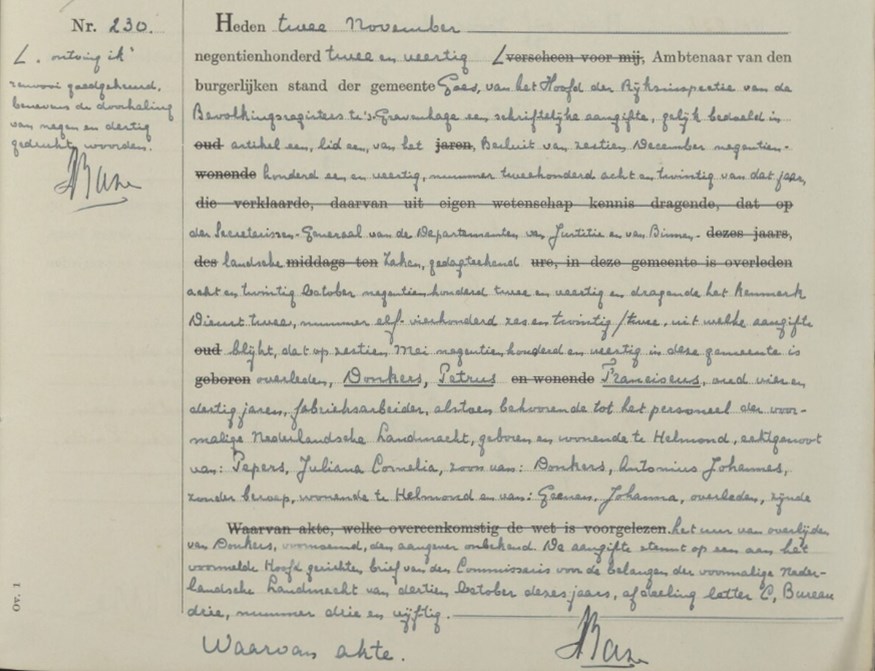 Nr. 230.
Heden twee November
L. ontving ik
goedgekeurd,
benevens de doorhaling
van negen en dertig
gedrukte woorden.
negentienhonderd twee en veertig L verscheen voor mij, Ambtenaar van den
burgerlijken stand der gemeente Goes, van het Hoofd der Rijksinspectie van de
Bevolkingsregisters te 's-Gravenhage een schriftelijke aangifte, gelijk bedoeld in
oud artikel een, lid een, van het jaren, Besluit van zestien December negentien-
wonende honderd een en veertig, nummer tweehonderd acht en twintig van dat jaar,
die verklaarde, daarvan uit eigen wetenschap kennis dragende, dat op
der Secretarissen-Generaal van de Departementen van Justitie en van Binnen- dezes jaars,
des landsche middags ten Zaken, gedagteekend ure, in deze gemeente is overleden
acht en twintig October negentienhonderd twee en veertig en dragende het kenmerk
Dienst twee, nummer elf-vierhonderd zes en twintig/twee, uit welke aangifte
oud blijkt, dat op zestien Mei negentienhonderd en veertig in deze gemeente is
geboren overleden, Donkers, Petrus en wonende Franciscus, oud vier en
dertig jaren, fabrieksarbeider, alstoen behoorende tot het personeel der voor-
malige Nederlandsche Landmacht, geboren en wonende te Helmond, echtgenoot
van: Pepers, Juliana Cornelia, zoon van: Donkers, Antonius Johannes,
zonder beroep, wonende te Helmond en van: Geenen, Johanna, overleden, zijnde
Waarvan akte, welke overeenkomstig de wet is voorgelezen. het uur van overlijden
van Donkers, voornoemd, den aangever onbekend. De aangifte steunt op een aan het
voormelde Hoofd gerichten brief van den Commissaris voor de belangen der voormalige Neder-
landsche Landmacht van dertien October dezes jaars, afdeeling letter C, Bureau
drie, nummer drie en vijftig.
Ov. 1
Waarvan akte.